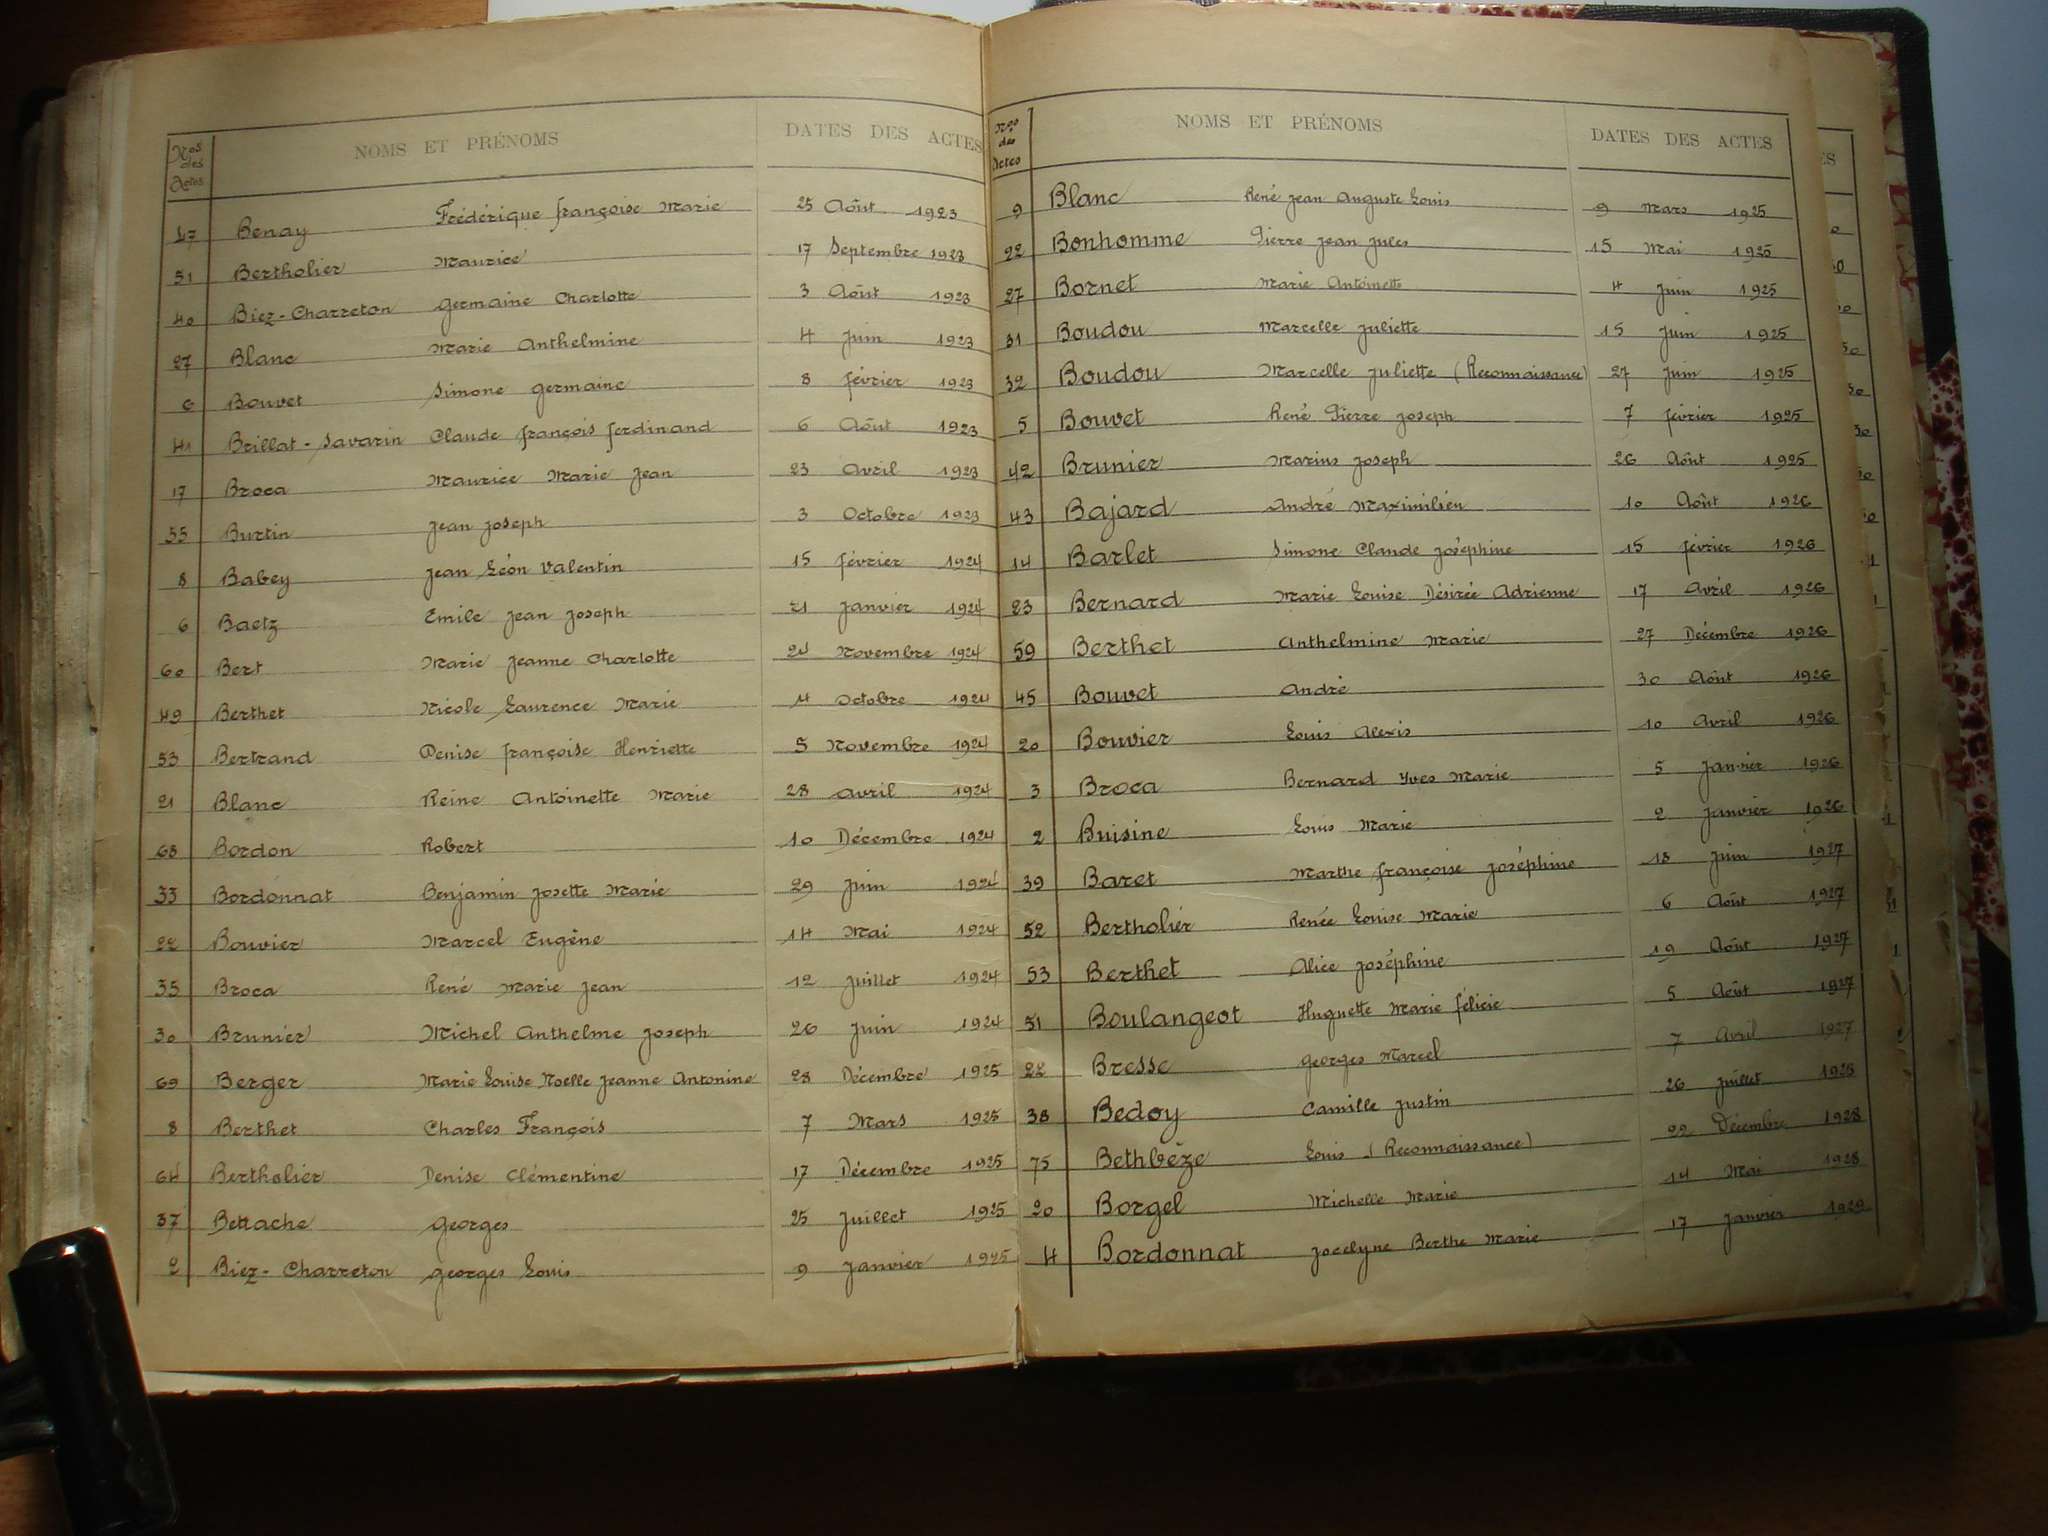 Nos des Actes NOMS ET PRÉNOMS DATES DES ACTES
47 Benay Frédérique Françoise Marie 25 Août 1923
51 Bertholier Maurice 17 Septembre 1923
40 Biez-Charreton Germaine Charlotte 3 Août 1923
27 Blanc Marie Anthelmine 4 Juin 1923
6 Bouvet Simone Germaine 8 Février 1923
41 Brillat-Savarin Claude François Ferdinand 6 Août 1923
17 Broca Maurice Marie Jean 23 Avril 1923
55 Burtin Jean Joseph 3 Octobre 1923
8 Babey Jean Léon Valentin 15 Février 1924
6 Baetz Emile Jean Joseph 21 Janvier 1924
60 Bert Marie Jeanne Charlotte 24 Novembre 1924
49 Berthet Nicole Laurence Marie 4 Octobre 1924
53 Bertrand Denise Françoise Henriette 5 Novembre 1924
21 Blanc Reine Antoinette Marie 28 Avril 1924
68 Bordon Robert 10 Décembre 1924
33 Bordonnat Benjamin Josette Marie 29 Juin 1924
22 Bouvier Marcel Eugène 14 Mai 1924
35 Broca René Marie Jean 12 Juillet 1924
30 Brunier Michel Anthelme Joseph 26 Juin 1924
69 Berger Marie Louise Noelle Jeanne Antonine 28 Décembre 1925
8 Berthet Charles François 7 Mars 1925
64 Bertholier Denise Clémentine 17 Décembre 1925
37 Bettache Georges 25 Juillet 1925
2 Biez-Charreton Georges Louis 9 Janvier 1925
Nos des Actes NOMS ET PRÉNOMS DATES DES ACTES
9 Blanc René Jean Auguste Louis 9 Mars 1925
22 Bonhomme Pierre Jean Jules 15 Mai 1925
27 Bornet Marie Antoinette 4 Juin 1925
31 Boudou Marcelle Juliette 15 Juin 1925
32 Boudou Marcelle Juliette (Reconnaissance) 27 Juin 1925
5 Bouvet René Pierre Joseph 7 Février 1925
42 Brunier Marius Joseph 26 Août 1925
43 Bajard André Maximilien 10 Août 1926
14 Barlet Simone Claude Joséphine 15 Février 1926
23 Bernard Marie Louise Désirée Adrienne 17 Avril 1926
59 Berthet Anthelmine Marie 27 Décembre 1926
45 Bouvet André 30 Août 1926
20 Bouvier Louis Alexis 10 Avril 1926
3 Broca Bernard Yves Marie 5 Janvier 1926
2 Buisine Louis Marie 2 Janvier 1926
39 Baret Marthe Françoise Joséphine 18 Juin 1927
52 Bertholier Renée Louise Marie 6 Août 1927
53 Berthet Alice Joséphine 19 Août 1927
51 Boulangeot Huguette Marie Félicie 5 Août 1927
22 Bresse Georges Marcel 7 Avril 1927
38 Bedoy Camille Justin 26 Juillet 1928
75 Bethbèze Louis (Reconnaissance) 22 Décembre 1928
20 Borgel Michelle Marie 14 Mai 1928
4 Bordonnat Jocelyne Berthe Marie 17 Janvier 1929